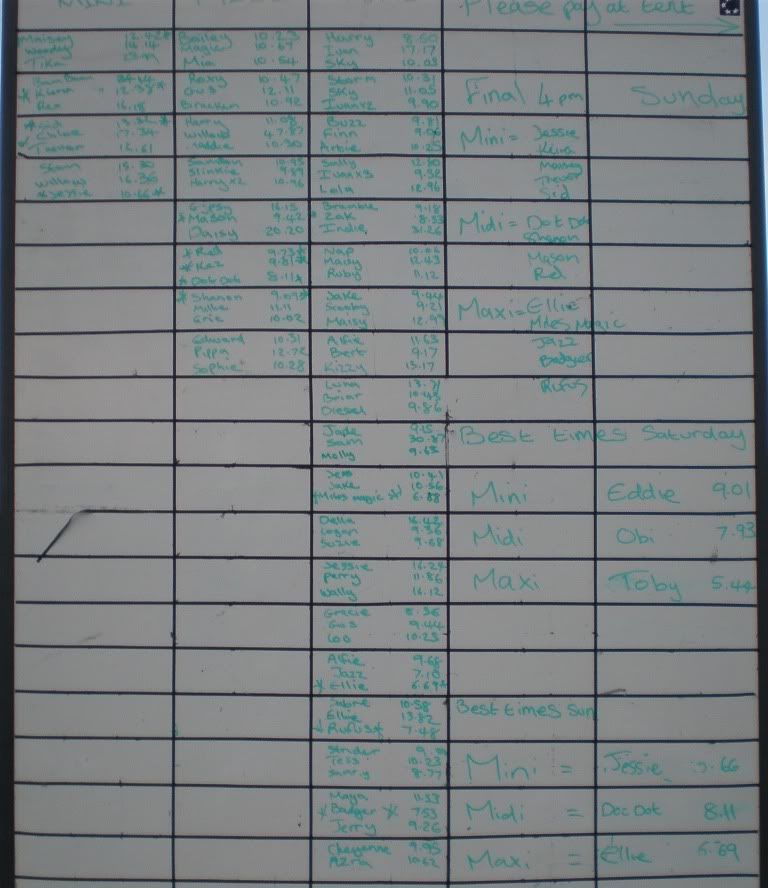 MINI
Please pay at tent
Maisey 12.42
Woody 14.14
Tika
Bailey 10.23
Magic 10.67
Mia 10.54
Harry 8.50
Ivan 17.17
Sky 10.03
Rex 16.18
Roxy 10.47
Gus 12.11
Bracken 10.92
Storm 10.31
Sky 11.05
Ivan x2 9.90
Final 4pm Sunday
Chloe 17.34
Trevor 12.61
Harry 11.08
Willow 47.87
Maddie 10.30
Buzz 9.81
Finn 9.06
Archie 10.25
Mini = Jessie
Keira
Maisey
Trevor
Sid
Sham 15.30
Willow 16.36
*Jessie 10.66*
Slinkie 9.89
Harry x2 10.96
Sally 12.80
Ivan x3 9.32
Lola 12.96
Gypsy 16.15
*Mason 9.42
Daisy 20.20
Bramble 9.18
Zak 8.53
Indie 31.26
Midi = Dot Dot
Shanon
Mason
Red
*Red 9.73*
*Kez 9.81*
*Dot Dot 8.11*
Nap 10.06
Maisy 12.43
Ruby 11.12
*Shanon 9.09*
Millie 11.11
Erie 10.02
Jake 9.44
Scooby 9.21
Maisy 12.97
Maxi = Ellie
Miles Magic
Jazz
Badger
Rufus
Edward 10.31
Pippa 12.72
Sophie 10.28
Alfie 11.63
Bert 9.17
Kizzy 13.17
Luna 13.71
Briar 10.45
Diesel 9.86
Jade 9.15
Sam 30.87
Molly 9.63
Best times Saturday
Jess 10.41
Jake 10.56
*Miles Magic* 6.88
Mini Eddie 9.01
Della 16.42
Logan 9.36
Suzie 9.68
Midi Obi 7.93
Jessie 16.24
Perry 11.86
Wally 16.12
Maxi Toby 5.44
Gracie 8.36
Gus 9.44
Coo 10.23
Alfie 9.68
Jazz 7.10
*Ellie 6.69*
Sabre 10.58
Ellie 13.82
*Rufus* 7.48
Best times Sun
Strider
Tess 10.23
Sandy 8.77
Mini = Jessie 9.66
Maya 11.33
*Badger* 7.53
Jerry 9.26
Midi = Doc Dot 8.11
Cheyenne 9.95
Azra 10.62
Maxi = Ellie 6.69